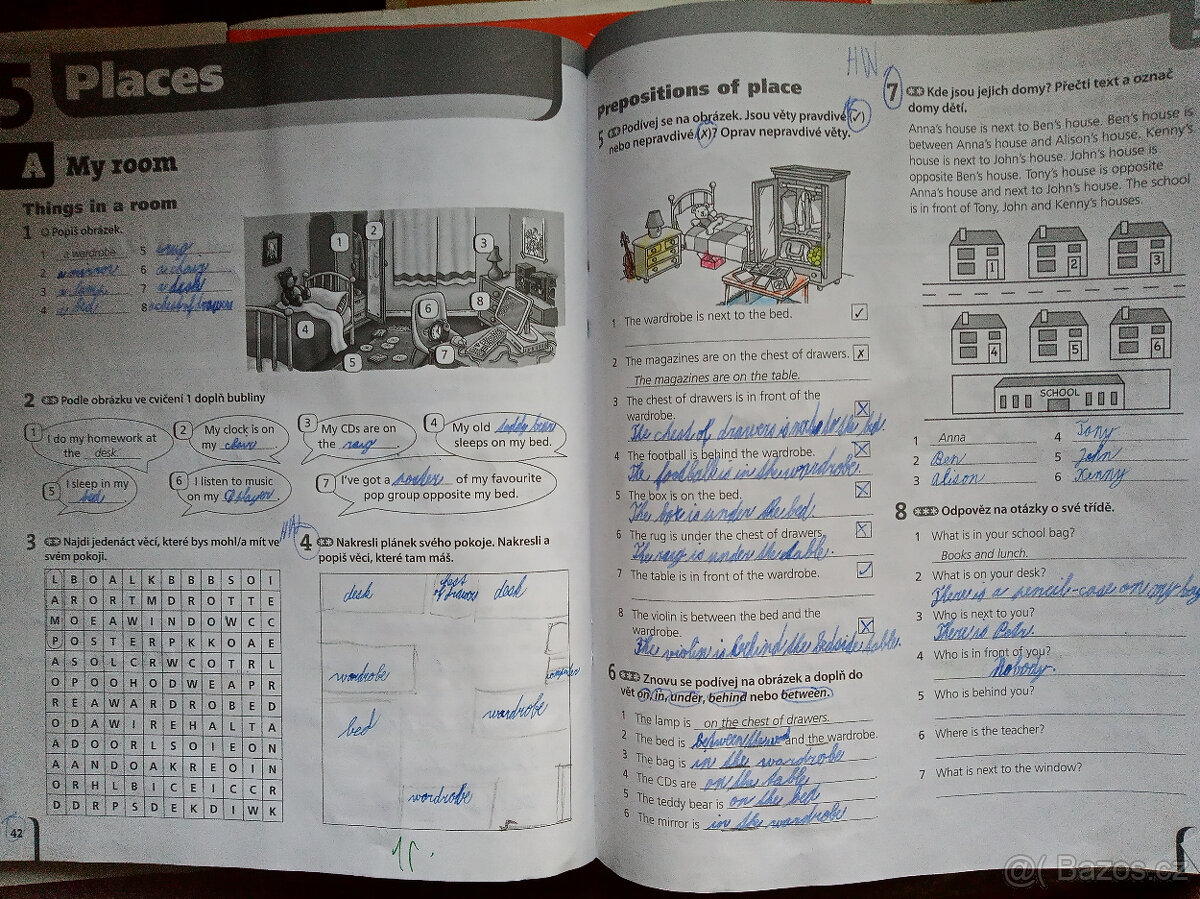 5 Places
A My room
Things in a room
1 Popiš obrázek.
a wardrobe
2 a mirror
3 a lamp
4 a bed
5 a rug
6 a chair
7 a desk
8 a chest of drawers
1
2
3
4
5
6
7
8
2 Podle obrázku ve cvičení 1 doplň bubliny
1 I do my homework at
the desk.
2 My clock is on
my chair.
3 My CDs are on
the rug.
4 My old teddy bear
sleeps on my bed.
5 I sleep in my
bed
6 I listen to music
on my
7 I've got a of my favourite
pop group opposite my bed.
3 Najdi jedenáct věcí, které bys mohl/a mít ve
svém pokoji.
L B O A L K B B B S O I
A R O R T M D R O T T E
M O E A W I N D O W C C
P O S T E R P K K O A E
A S O L C R W C O T R L
O P O O H O D W E A P R
R E A W A R D R O B E D
O D A W I R E H A L T A
A D O O R L S O I E O N
A A N D O A K R E O I N
O R H L B I C E I C C R
D D R P S D E K D I W K
HW
4 Nakresli plánek svého pokoje. Nakresli a
popiš věci, které tam máš.
desk
desk
wardrobe
computer
wardrobe
bed
wardrobe
42
HW
Prepositions of place
5 Podívej se na obrázek. Jsou věty pravdivé (✓)
nebo nepravdivé (x)? Oprav nepravdivé věty.
1 The wardrobe is next to the bed. ✓
2 The magazines are on the chest of drawers. ✗
The magazines are on the table.
3 The chest of drawers is in front of the
wardrobe. X
The chest of drawers is next to the bed.
4 The football is behind the wardrobe. X
The football is in the wardrobe.
5 The box is on the bed. X
The box is under the bed.
6 The rug is under the chest of drawers. X
The rug is under the table.
7 The table is in front of the wardrobe. ✓
8 The violin is between the bed and the
wardrobe. X
The violin is behind the bedside table.
6 Znovu se podívej na obrázek a doplň do
vět on, in, under, behind nebo between.
1 The lamp is on the chest of drawers.
2 The bed is between and the wardrobe.
3 The bag is in the wardrobe
4 The CDs are on the table
5 The teddy bear is on the bed
6 The mirror is in the wardrobe
7 Kde jsou jejich domy? Přečti text a označ
domy dětí.
Anna's house is next to Ben's house. Ben's house is
between Anna's house and Alison's house. Kenny's
house is next to John's house. John's house is
opposite Ben's house. Tony's house is opposite
Anna's house and next to John's house. The school
is in front of Tony, John and Kenny's houses.
1
2
3
4
5
6
SCHOOL
1 Anna
2 Ben
3 Alison
4 Tony
5 John
6 Kenny
8 Odpověz na otázky o své třídě.
1 What is in your school bag?
Books and lunch.
2 What is on your desk?
There is a pencil-case on my
3 Who is next to you?
There is Petr.
4 Who is in front of you?
Nobody.
5 Who is behind you?
6 Where is the teacher?
7 What is next to the window?
Bazos.cz